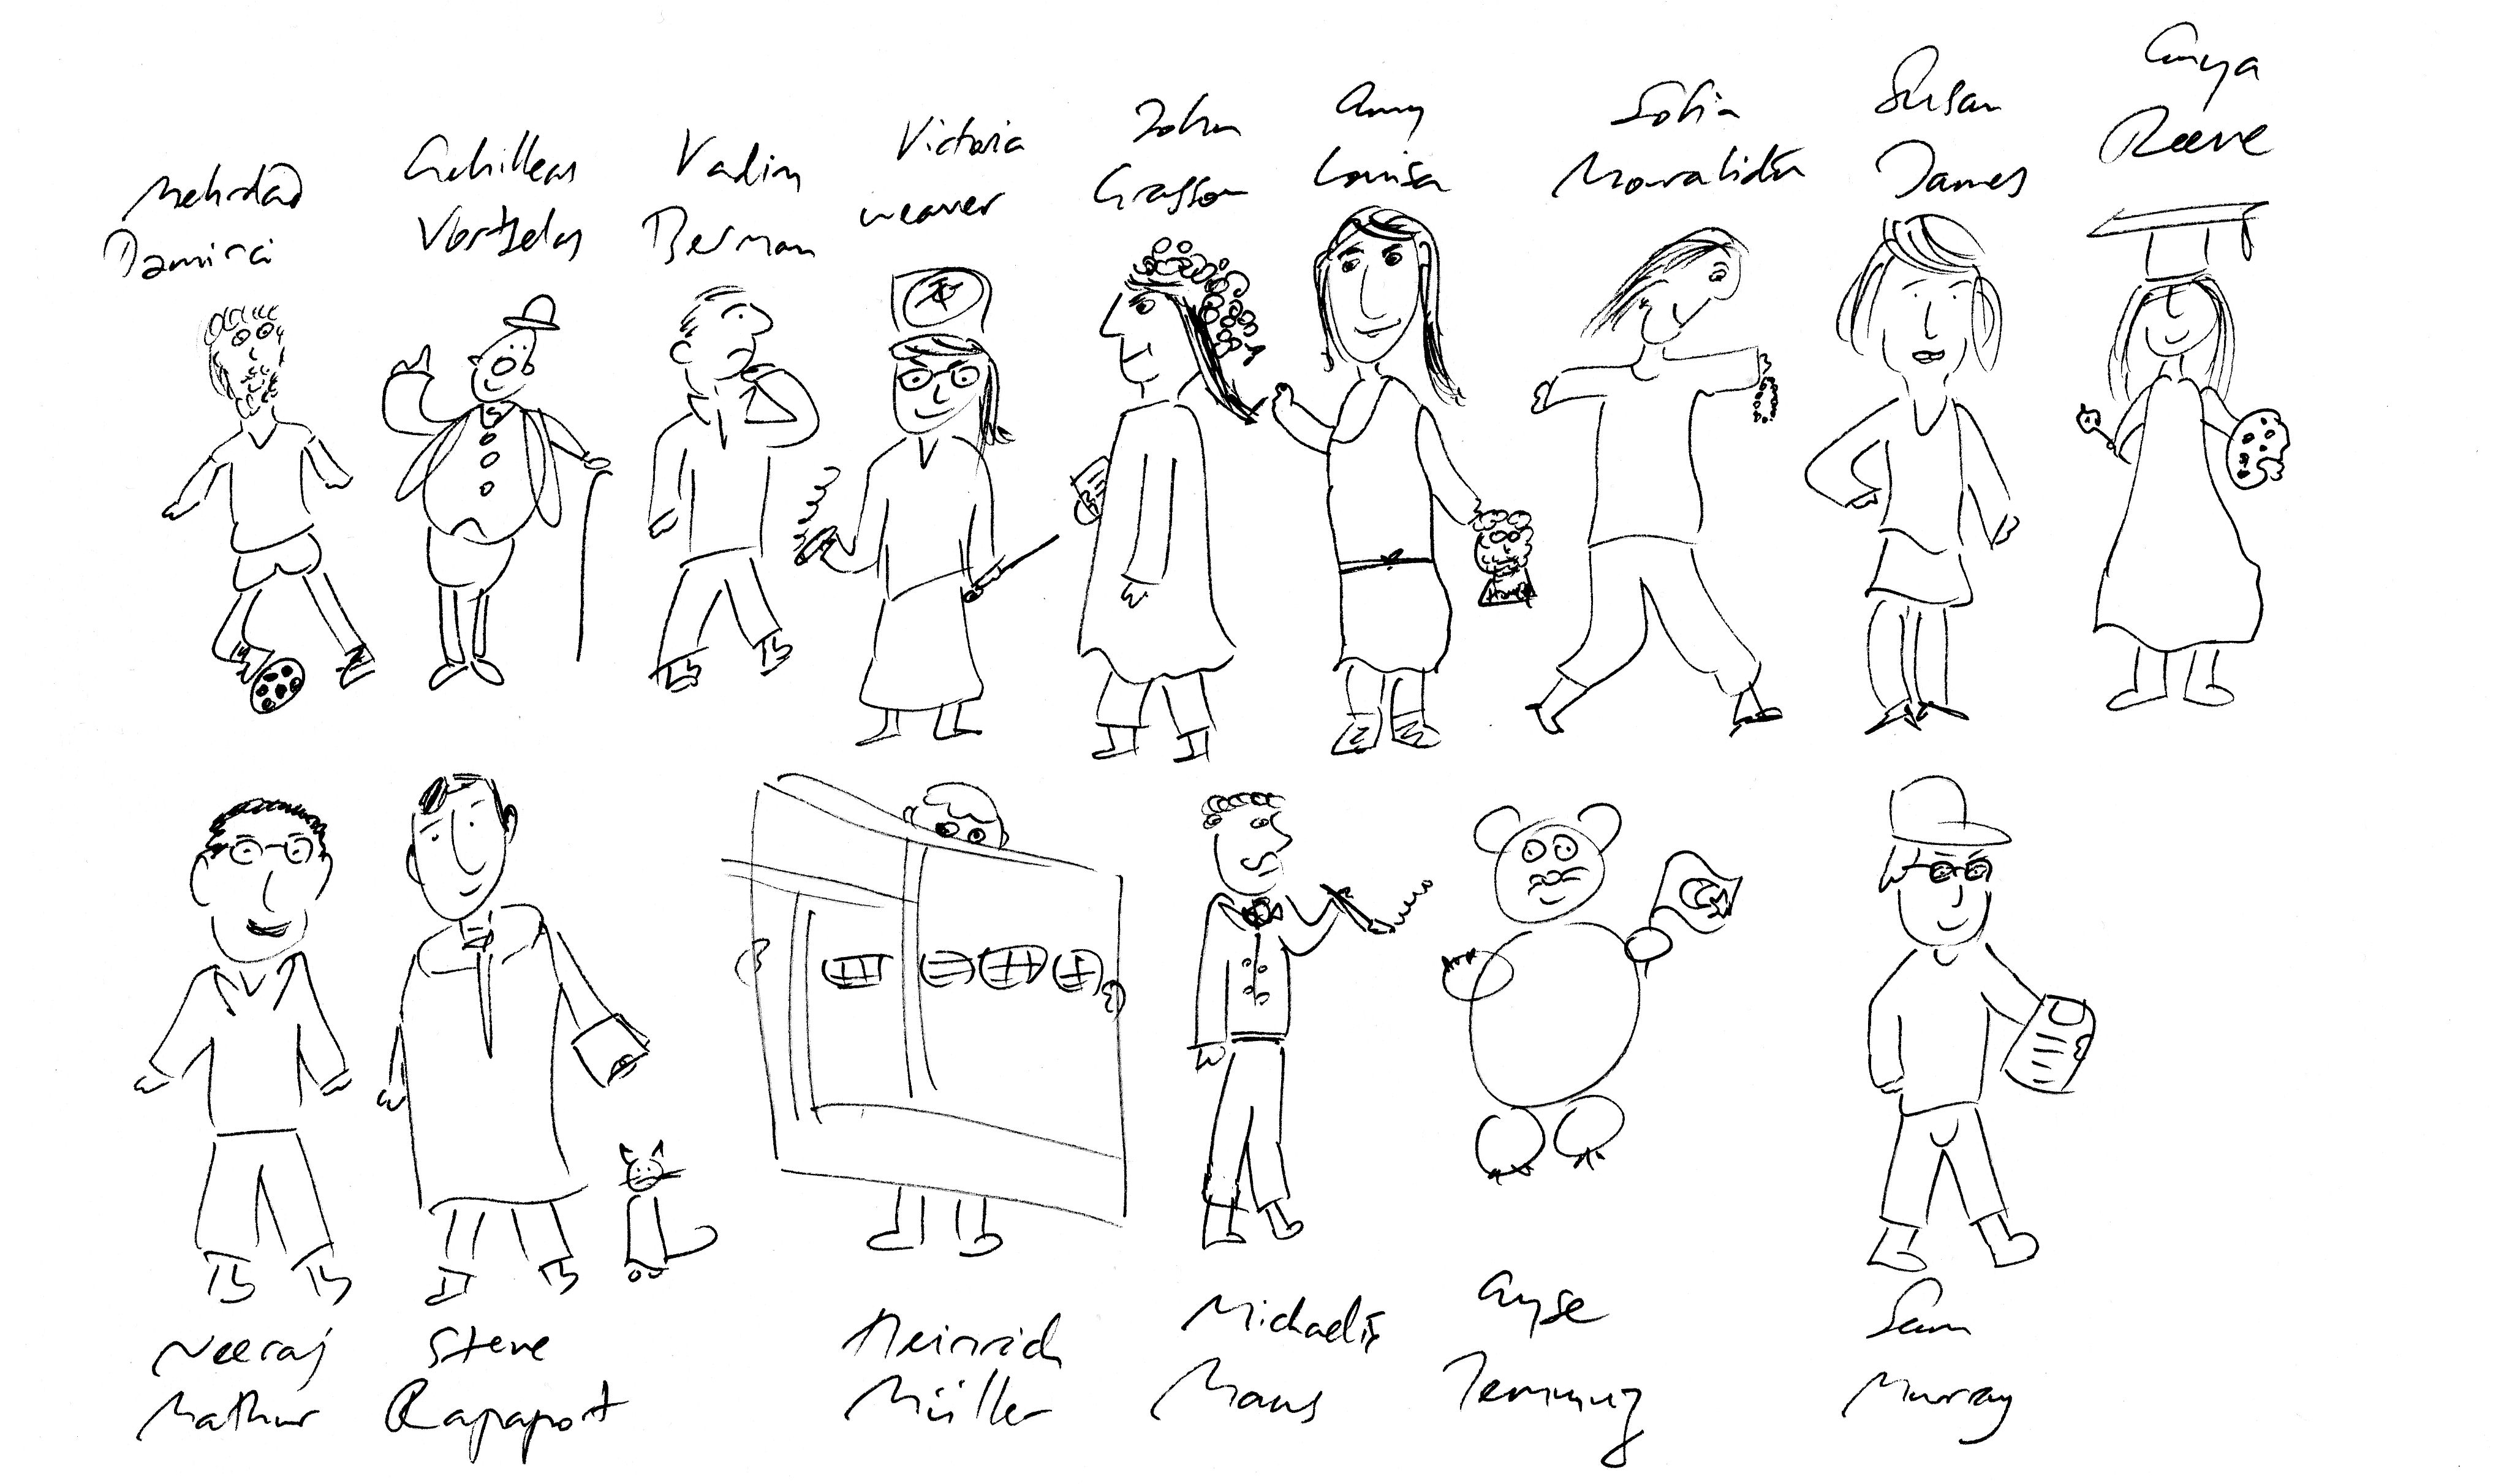 Mehrdad
Damirci
Achilleas
Vortselas
Vadim
Berman
Victoria
weaver
John
Grasso
Amy
Louisa
Sofia
Susan
James
Anya
Reeve
Neeraj
Mathur
Steve
Rapaport
Heinrich
Müller
Michaelis
Maus
Ayse
Sam
Murray